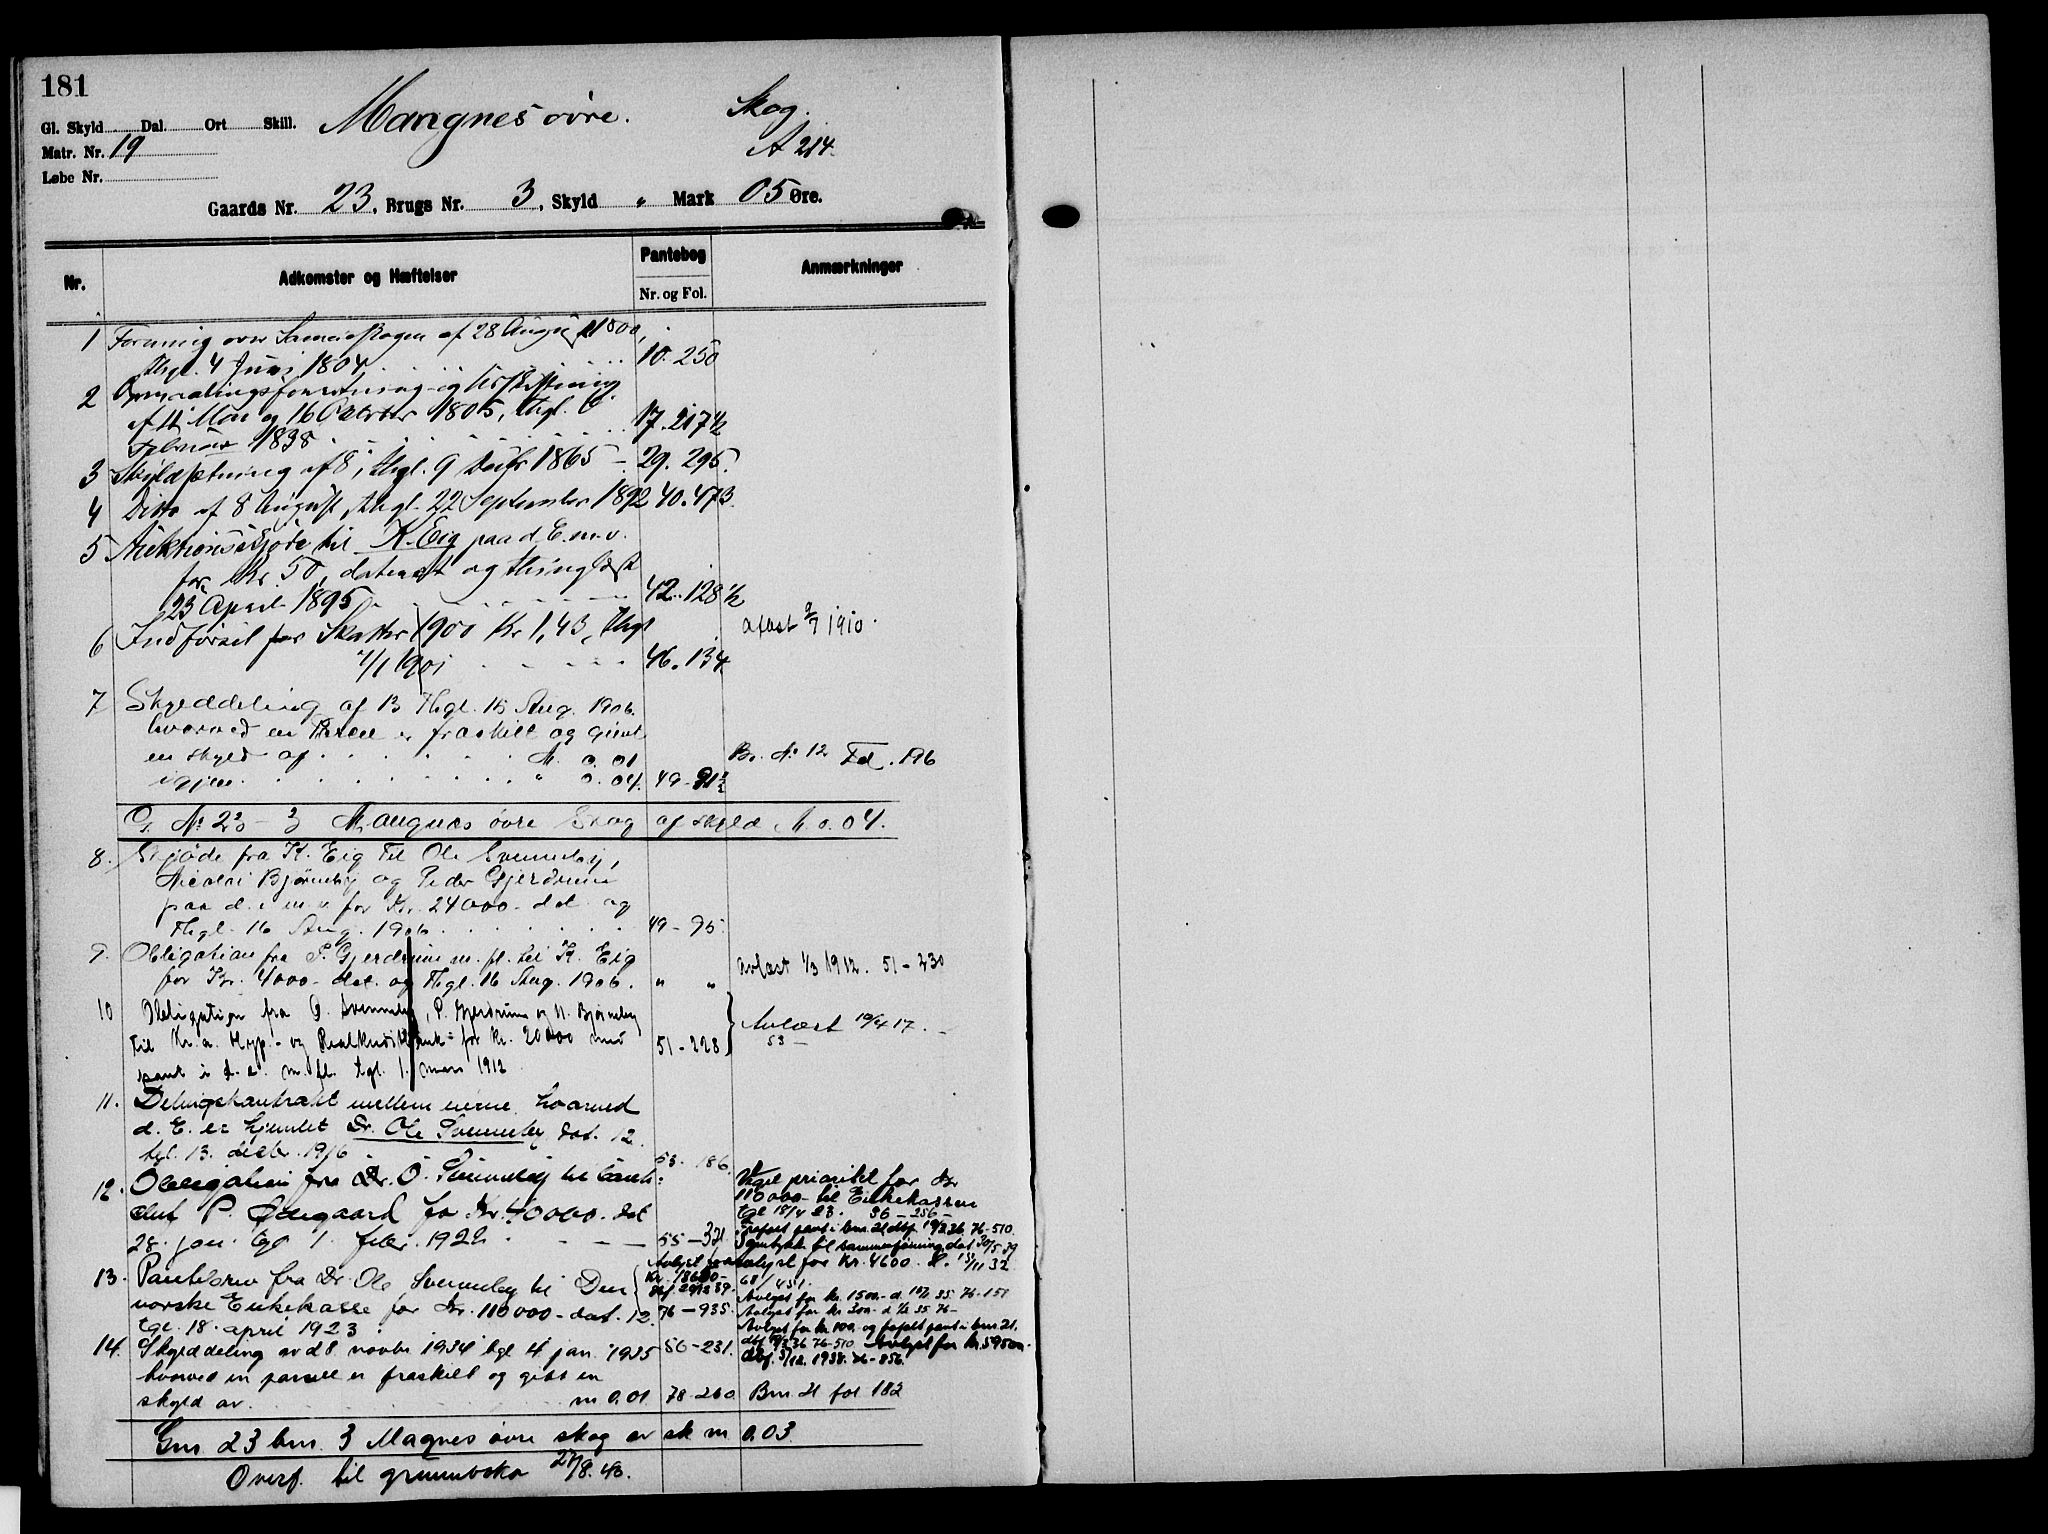 181
Gl. Skyld Dal. Ort Skill. Mangnes øvre. Skog.
Matr. Nr. 19 A 214.
Løbe Nr.
Gaards Nr. 23, Brugs Nr. 3, Skyld " Mark 05 Øre.
Nr. Adkomster og Hæftelser Pantebog Nr. og Fol. Anmærkninger
1 Forening over Sameieskogen af 28 August 1800,
thgl. 4 Juni 1804 10. 250
2 Opmaalingsforretning og Udskiftning
af 14 Mai og 16 October 1805, thgl.
Februar 1838 17. 217 1/2
3 Skyldsætning af 8, thgl. 9 Decbr 1865 29. 295.
4 Ditto af 8 August, thgl. 22 September 1892 40. 473.
5 Auktionsskjøde til K. Eig paa d. E. m. v.
for Kr. 50, dateret og thinglæst
23 April 1895 42. 128 1/2
6 Indførsel for Skatter 1900 Kr 1,43, thgl
1/1 1901 46. 134. aflæst 9/7 1910.
7 Skylddeling af 13 Thgl. 16 Aug. 1906.
hvorved en Parcel er fraskilt og givet
en skyld af M. 0.01 Br. No 12 Fol. 196
igjen " 0.04. 49 - 91 1/2
G. No 23 - 3 Mangnes øvre Skog af skyld M. 0.04.
8. Skjøde fra K. Eig til Ole Svenneby,
Nicolai Bjørneby og Peder Gjerdrum
paa d. e. m. v for Kr. 24000 - dat. og
Thgl. 16 Aug. 1906 49 - 95
9. Obligation fra P. Gjerdrum m. fl. til K. Eig
for Kr. 4000 - dat. og Thgl. 16 Aug. 1906. " " Avlæst 1/3 1912. 51 - 230
10 Obligation fra O. Svenneby, P. Gjerdrum og N. Bjørneby
til Kr.a. Hyp.- og Realkreditbank for Kr. 20000 med 51 - 228 Avlæst 19/4 17. -
53 -
pant i d. e. m. fl. tgl. 1. mars 1912
11. Delingskontrakt mellem eierne, hvorved
d. E. er hjemlet Dr. Ole Svenneby dat. 12.
tgl. 13. decbr. 1916 53. 186.
12. Obligation fra Dr. O. Svenneby til
P. Ødegaard for Kr. 40000. dat
28. jan. tgl 1. febr. 1922 55 - 371
Veget prioritet for Kr
110000 - til Enkekassen
tgl 18/4 23. 56 - 256 -
Frafalt pant i bnr. 21 dbf. 19/2 36 76-510.
Samtykke til sammenføyning dat 30/5 39
13. Pantebrev fra Dr. Ole Svenneby til Den
norske Enkekasse for Kr. 110000 - dat. 12.
tgl. 18. april 1923. 56 - 231.
76 - 935.
Avlyst for Kr. 4600. 15/11 32
68/451.
Avlyst for kr. 1500 - 35 76-151
Avlyst for kr 300 - 35 76 -
Avlyst for kr 100 - og frafalt pant i bnr. 21.
dbf 19/2 36 76-510 Avlyst for kr. 5950 -
dbf. 5/12. 1938. 76 - 856.
14. Skylddeling av d 8 novbr 1934 tgl 4 jan. 1935
hvorved en parsell er fraskilt og gitt en
skyld av m 0,01 78-260 Bnr 21 fol 182
Gnr. 23 bnr. 3 Magnes øvre skog av sk m 0.03.
Overf. til grunnboka 27/8. 43.